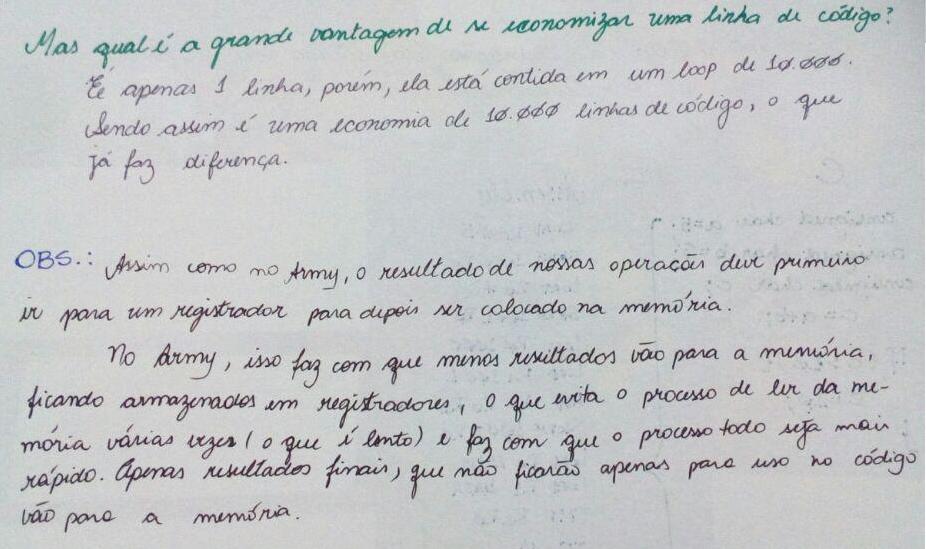 Mas qual é a grande vantagem de se economizar uma linha de código?
É apenas 1 linha, porém, ela está contida em um loop de 10.000.
Sendo assim é uma economia de 10.000 linhas de código, o que
já faz diferença.
OBS.: Assim como no Army, o resultado de nossas operações deve primeiro
ir para um registrador para depois ser colocado na memória.
No Army, isso faz com que menos resultados vão para a memória,
ficando armazenados em registradores, o que evita o processo de ler da me-
mória várias vezes (o que é lento) e faz com que o processo todo seja mais
rápido. Apenas resultados finais, que não ficarão apenas para uso no código
vão para a memória.